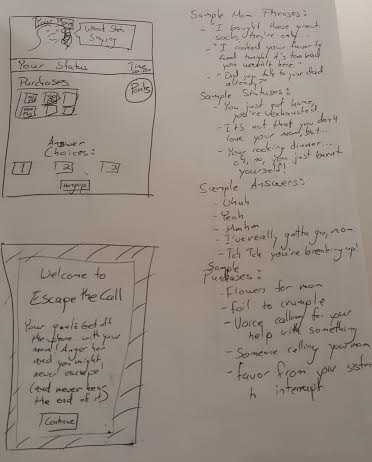 Your Mom
What She's
Saying
Your Status
Time
Purchases
Points
Answer
Choices:
1
2
3
Hangup
Welcome to
Escape the Call
Your goal: Get off
the phone with your
mom! Anger her
and you might
never escape!
(and never hear
the end of it)
Continue
Sample Mom Phrases:
- "I bought these great
socks, they're only...
- "I cooked your favorite
food tonight it's too bad
you weren't here."
- "Did you talk to your dad
already?"
Sample Statuses:
- You just got home,
you're exhausted
- It's not that you don't
love your mom, but...
- Your cooking dinner...
oh, no, you just burnt
yourself!
Sample Answers:
- Uhuh
- Yeah
- Mmhm
- I've really gotta go, mom
- Tch Tch you're breaking up!
Sample
Purchases:
- Flowers for mom
- foil to crumple
- Voice calling for your
help with something
- Someone calling your mom
- favor from your sister
to interrupt